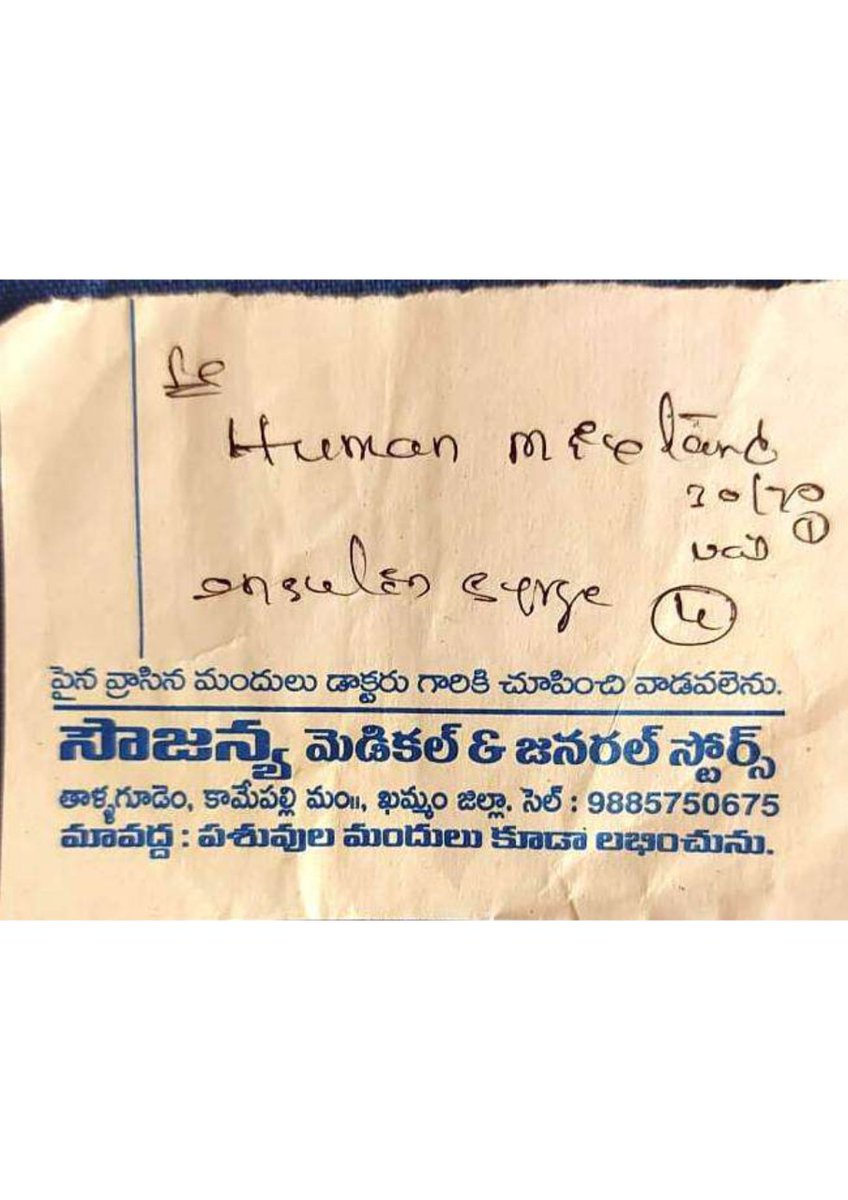 Human
30/70
①
insulin
4
పైన వ్రాసిన మందులు డాక్టరు గారికి చూపించి వాడవలెను.
సౌజన్య మెడికల్ & జనరల్ స్టోర్స్
తాళ్ళగూడెం, కామేపల్లి మం॥, ఖమ్మం జిల్లా. సెల్ : 9885750675
మావద్ద : పశువుల మందులు కూడా లభించును.